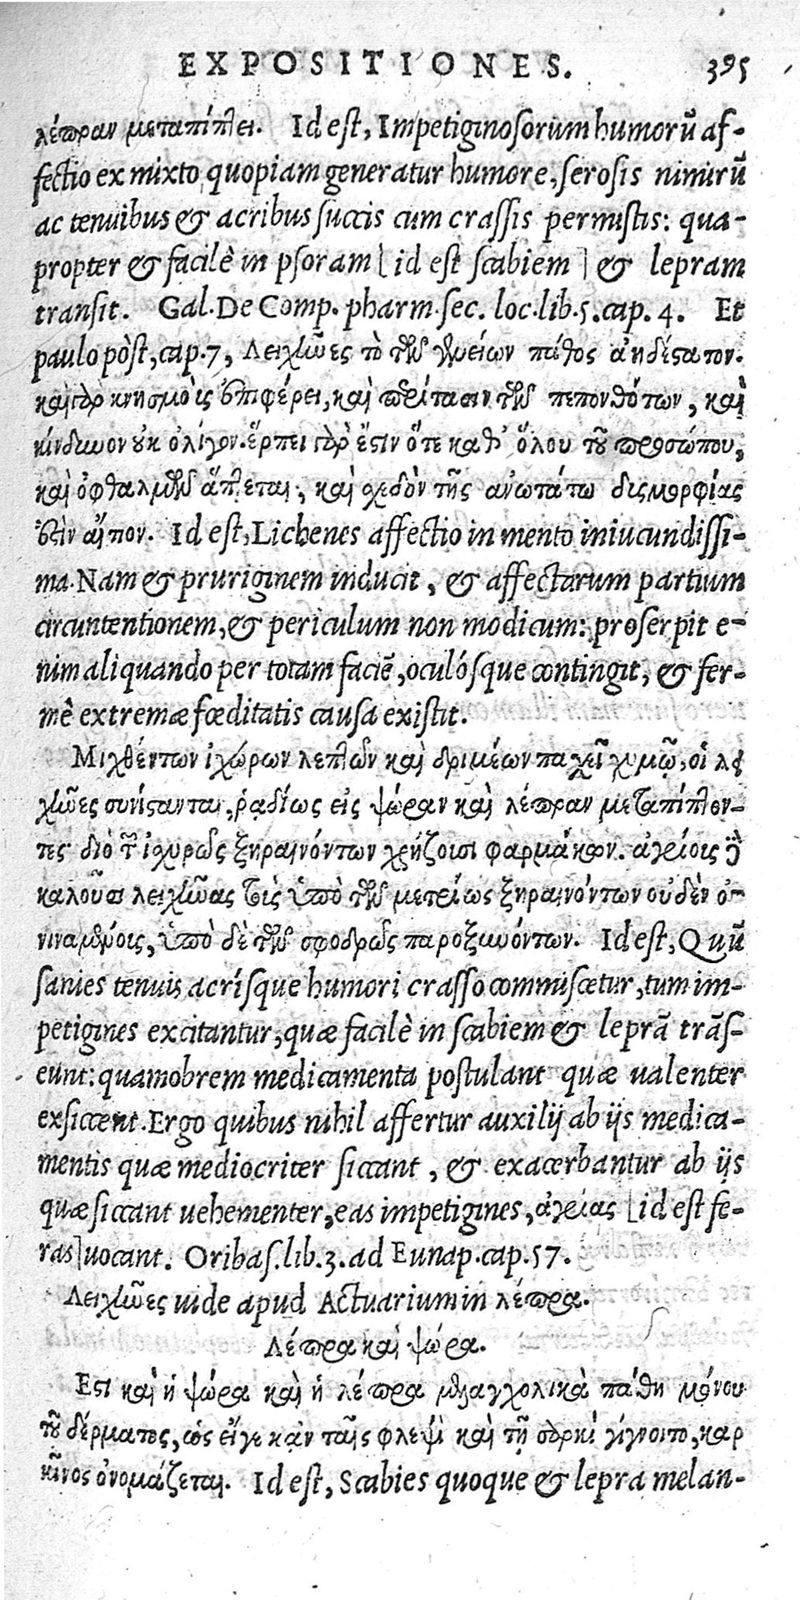 EXPOSITIONES. 395
λέπραν μεταπίπτει. Id est, Impetiginosorum humorũ af-
fectio ex mixto quopiam generatur humore, serosis nimirũ
ac tenuibus & acribus succis cum crassis permistis: qua-
propter & facilè in psoram [id est scabiem] & lepram
transit. Gal. De Comp. pharm. sec. loc. lib. 5. cap. 4. Et
paulo pòst, cap. 7, Λειχῆνες τὸ τῶν γενείων πάθος ἀηδέστατον.
καὶ γὰρ κνησμοὶς ἐπιφέρει, καὶ περίτασιν τῶν πεπονθότων, καὶ
κίνδυνον οὐκ ὀλίγον. ἕρπει γὰρ ἔστιν ὅτε καθ' ὅλου τοῦ προσώπου,
καὶ ὀφθαλμῶν ἅπτεται, καὶ σχεδὸν τῆς ἀνωτάτω δισμορφίας
ἐστὶν αἴτιον. Id est, Lichenes affectio in mento iniucundissi-
ma. Nam & pruriginem inducit, & affectarum partium
circuntentionem, & periculum non modicum: proserpit e-
nim aliquando per totam faciẽ, oculósque contingit, & fer-
mè extremæ fœditatis causa existit.
Μιχθέντων ἰχώρων λεπτῶν καὶ δριμέων παχεῖ χυμῷ, οἱ λει
χῆνες συνίστανται, ῥαδίως εἰς ψώραν καὶ λέπραν μεταπίπτον-
τες· διὸ τῶν ἰσχυρῶς ξηραινόντων χρῄζουσι φαρμάκων. ἀγρίους δὲ
καλοῦσι λειχῆνας τοὺς ὑπὸ τῶν μετρίως ξηραινόντων οὐδὲν ὀ-
νιναμένοις, ὑπὸ δὲ τῶν σφοδρῶς παροξυνόντων. Id est, Quũ
sanies tenuis acrísque humori crasso commiscetur, tum im-
petigines excitantur, quæ facilè in scabiem & leprã trãs-
eunt: quamobrem medicamenta postulant quæ ualenter
exsiccent. Ergo quibus nihil affertur auxilij ab ijs medica-
mentis quæ mediocriter siccant, & exacerbantur ab ijs
quæ siccant uehementer, eas impetigines, ἀγρίας [id est fe-
ras] uocant. Oribas. lib. 3. ad Eunap. cap. 57.
Λειχῆνες uide apud Actuarium in λέπρα.
Λέπρα καὶ ψώρα.
Εστι καὶ ἡ ψώρα καὶ ἡ λέπρα μελαγχολικὰ πάθη μόνου
τοῦ δέρματος, ὡς εἴγε κἀν ταῖς φλεψὶ καὶ τῇ σαρκὶ γίγνοιτο, καρ
κῖνος ὀνομάζεται. Id est, Scabies quoque & lepra melan-